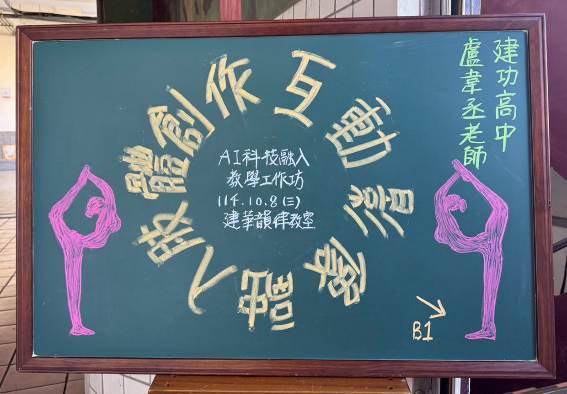 融入肢體創作互動
AI科技融入
教學工作坊
114.10.8(三)
建華韻律教室
建功高中
盧韋丞老師
B1